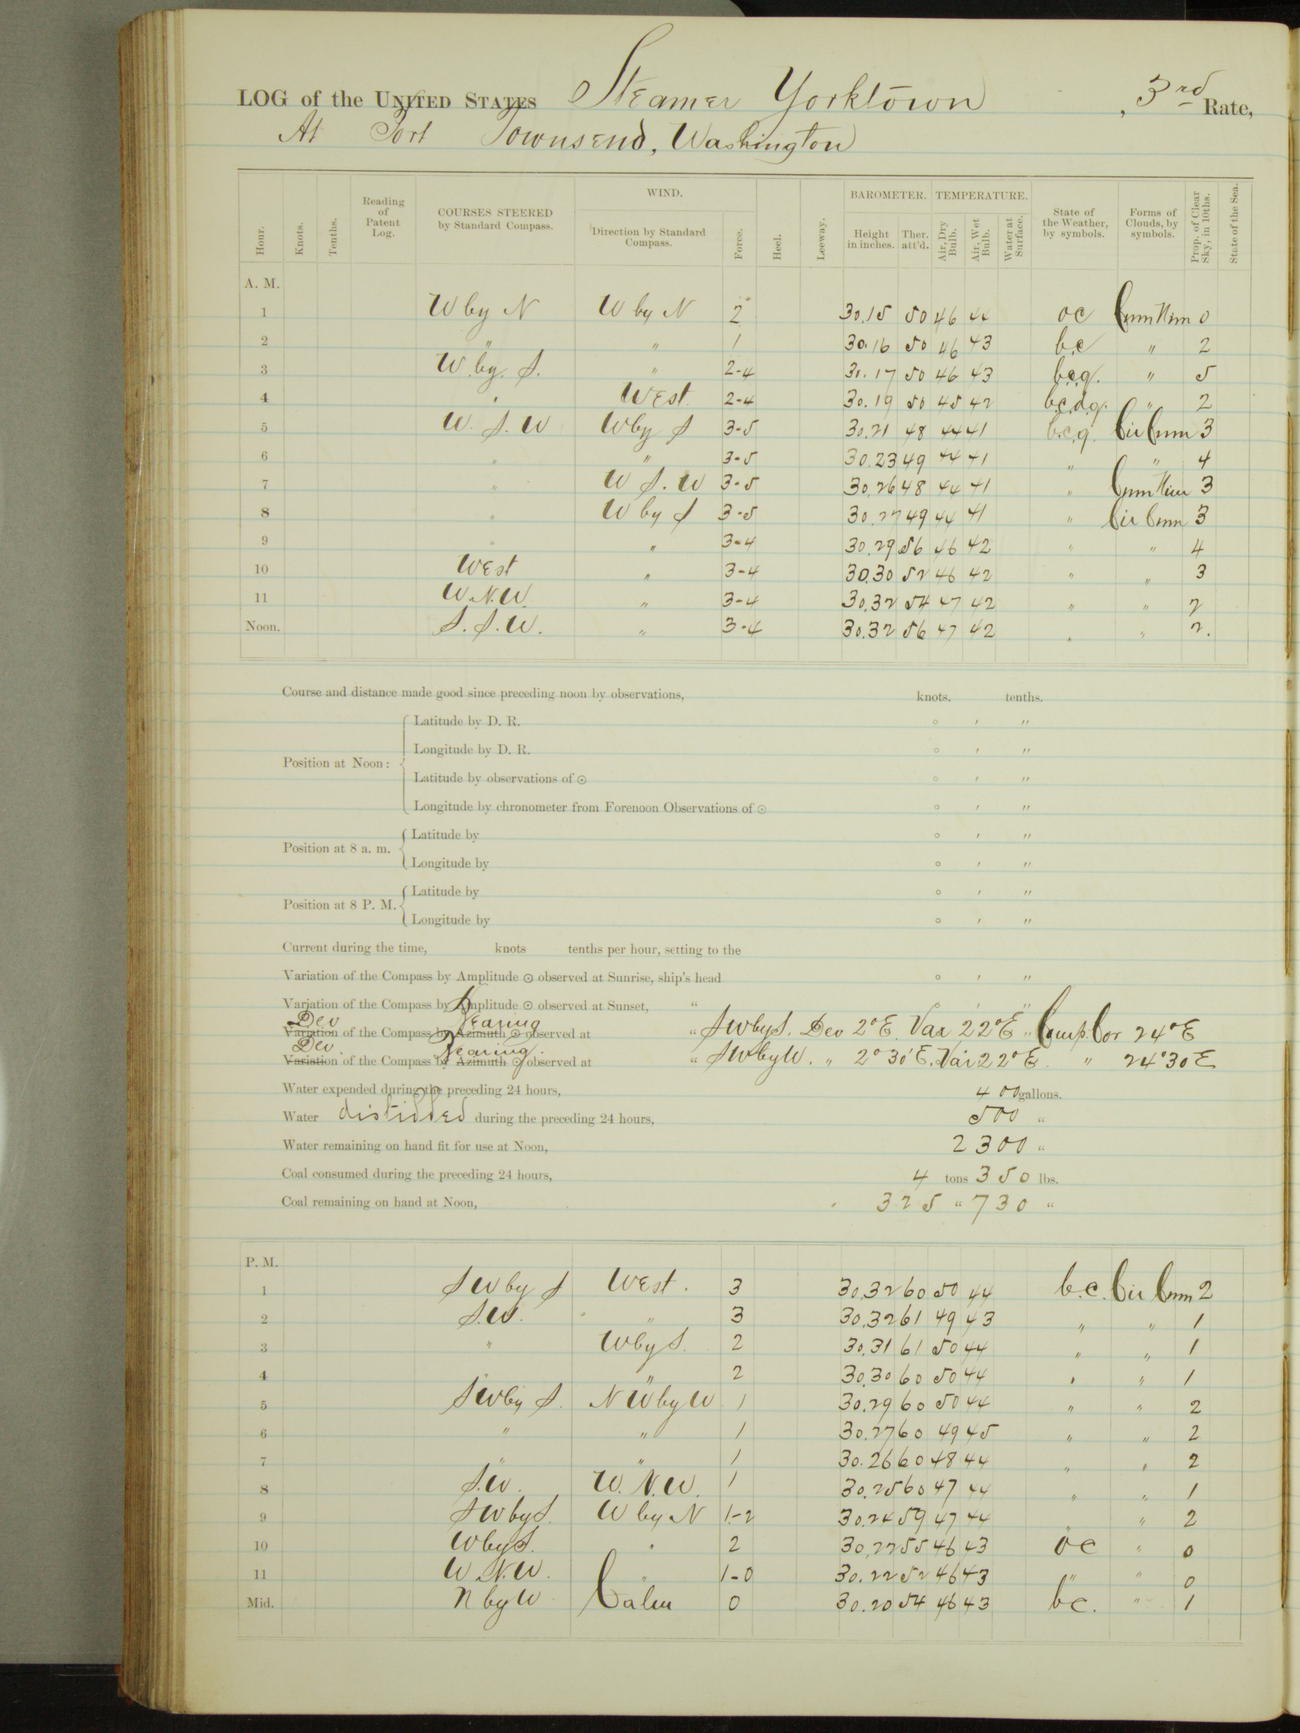 LOG of the UNITED STATES Steamer Yorktown, 3rd Rate,
At Port Townsend, Washington
Hour. Knots. Tenths. Reading of Patent Log. COURSES STEERED by Standard Compass. WIND. Direction by Standard Compass. Force. Heel. Leeway. BAROMETER. Height in inches. Ther. att'd. TEMPERATURE. Air, Dry Bulb. Air, Wet Bulb. Water at Surface. State of the Weather, by symbols. Forms of Clouds, by symbols. Prop. of Clear Sky, in 10ths. State of the Sea.
A. M.
1 W by N W by N 2 30.15 50 46 44 oc Cum Nim 0
2 " " 1 30.16 50 46 43 b.c " 2
3 W. by. S. " 2-4 30.17 50 46 43 b.c.q. " 5
4 " West 2-4 30.19 50 45 42 b.c.d.q. " 2
5 W. S. W W by S 3-5 30.21 48 44 41 b.c.q. Cir Cum 3
6 " " 3-5 30.23 49 44 41 " " 4
7 " W S. W 3-5 30.26 48 44 41 " Cum Nim 3
8 " W by S 3-5 30.27 49 44 41 " Cir Cum 3
9 " " 3-4 30.29 56 46 42 " " 4
10 West " 3-4 30.30 52 46 42 " " 3
11 W.N.W. " 3-4 30.32 54 47 42 " " 2
Noon. S. S. W. " 3-4 30.32 56 47 42 " " 2.
Course and distance made good since preceding noon by observations, knots. tenths.
Position at Noon: Latitude by D. R. ° ' "
Longitude by D. R. ° ' "
Latitude by observations of ☉ ° ' "
Longitude by chronometer from Forenoon Observations of ☉ ° ' "
Position at 8 a. m. Latitude by ° ' "
Longitude by ° ' "
Position at 8 P. M. Latitude by ° ' "
Longitude by ° ' "
Current during the time, knots tenths per hour, setting to the
Variation of the Compass by Amplitude ☉ observed at Sunrise, ship's head ° ' "
Variation of the Compass by Amplitude ☉ observed at Sunset, " ° ' "
Dev Bearing
Variation of the Compass by Azimuth ☉ observed at " SWbyS. Dev 2°E. Var 22°E " Comp. Cor 24°E
Dev. Bearing.
Variation of the Compass by Azimuth ☉ observed at " SWbyW. " 2°30'E. Var 22°E " 24°30E
Water expended during the preceding 24 hours, 400 gallons.
Water distilled during the preceding 24 hours, 500 "
Water remaining on hand fit for use at Noon, 2300 "
Coal consumed during the preceding 24 hours, 4 tons 350 lbs.
Coal remaining on hand at Noon, 325 " 730 "
P. M.
1 S W by S West. 3 30.32 60 50 44 b.c. Cir Cum 2
2 S.W. " 3 30.32 61 49 43 " " 1
3 " W by S. 2 30.31 61 50 44 " " 1
4 " " 2 30.30 60 50 44 " " 1
5 S W by S. N W by W 1 30.29 60 50 44 " " 2
6 " " 1 30.27 60 49 45 " " 2
7 " " 1 30.26 60 48 44 " " 2
8 S.W. W. N.W. 1 30.25 60 47 44 " " 1
9 S W by S. W by N 1-2 30.24 59 47 44 " " 2
10 W by S. " 2 30.22 55 46 43 oc " 0
11 W.N.W. " 1-0 30.22 52 46 43 " " 0
Mid. N by W Calm 0 30.20 54 46 43 b.c. " 1